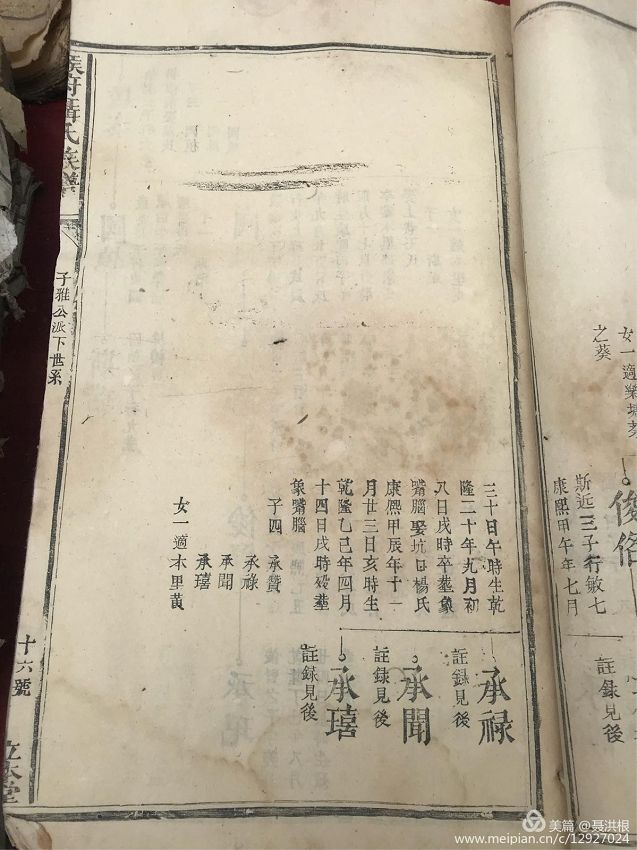 女一適樂塘葵
之葵
斯近三子行敏七
康熙甲午年七月
註録見後
三十日午時生乾
隆二十年九月初
八日戌時卒塟象
嘴腦娶坑口楊氏
康熙甲辰年十一
月廿三日亥時生
乾隆乙己年四月
十四日戌時歿塟
象嘴腦
子四 承贊
承祿
承聞
承瑃
女一適木里黄
承祿
註録見後
承聞
註録見後
承瑃
註録見後
府聶氏族譜
子雅公派下世系
十六號
立本堂
美篇 @聂洪根
www.meipian.cn/c/12927024